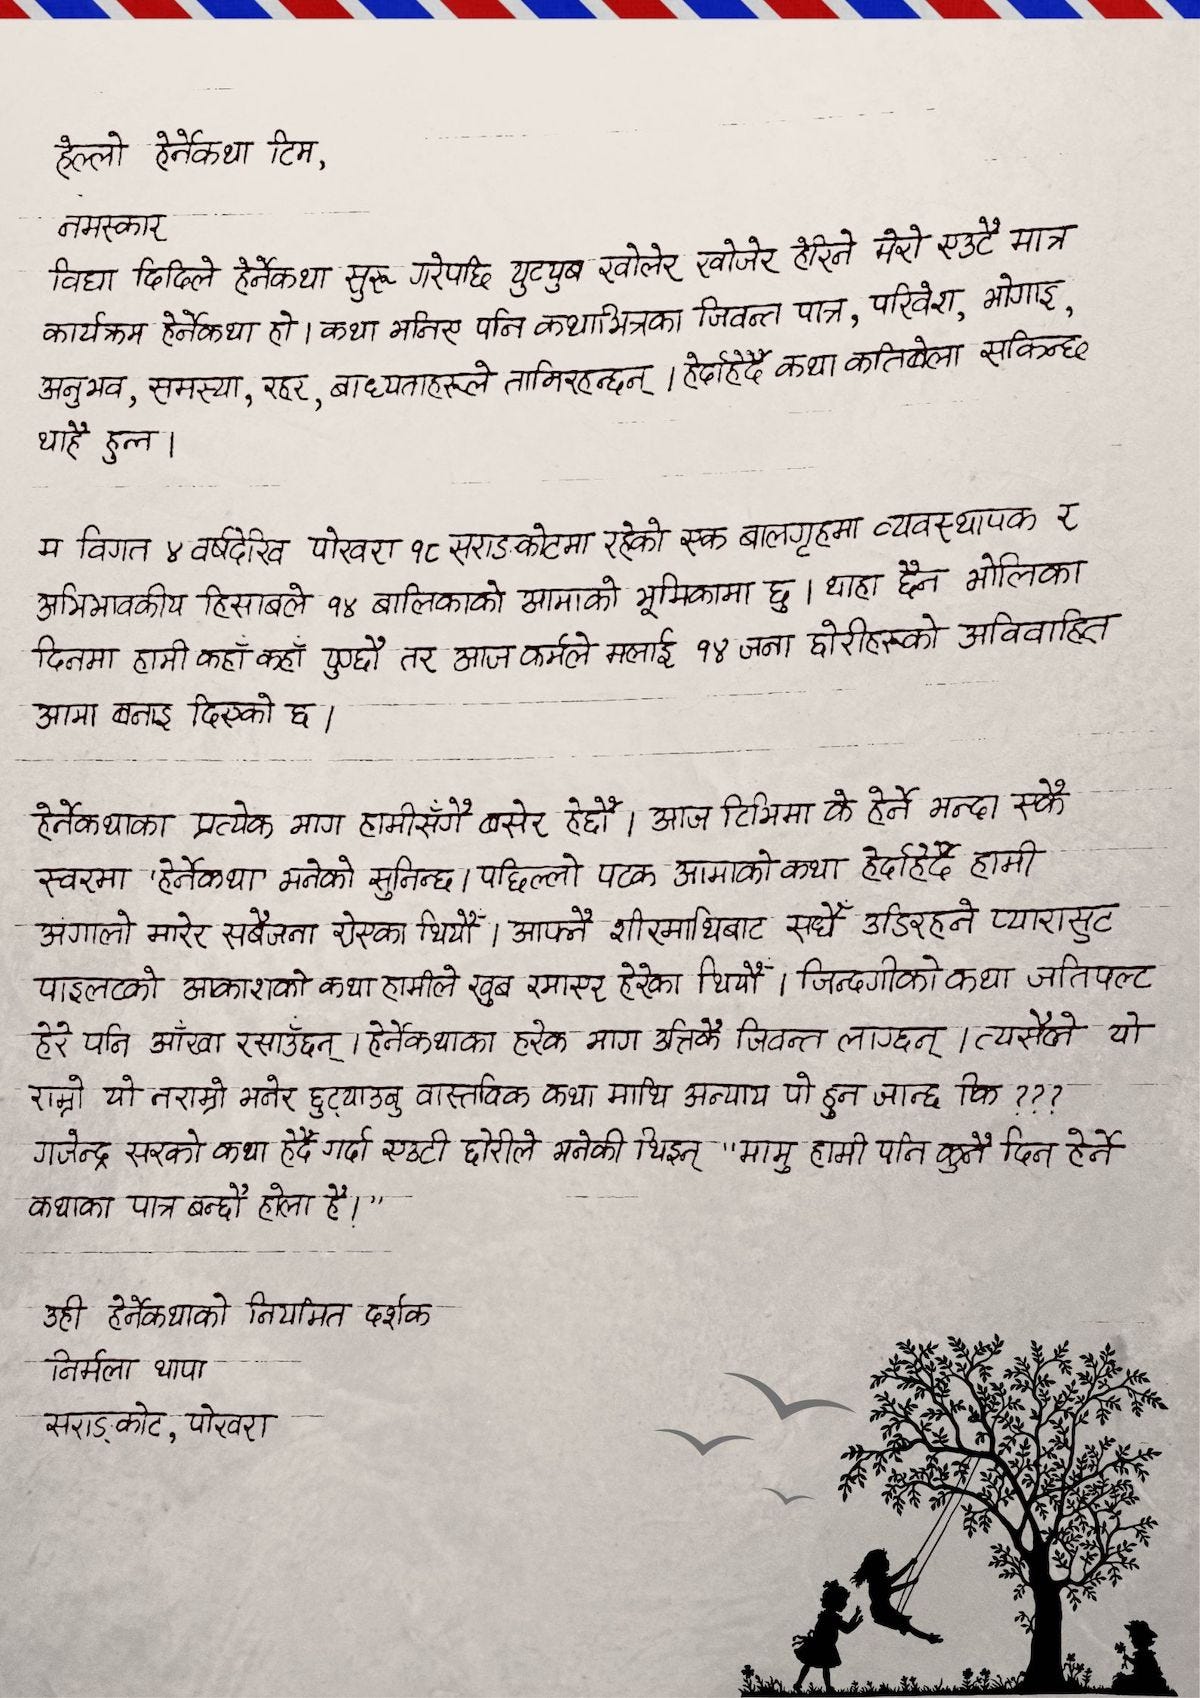 हेल्लो हेर्नेकथा टिम,
नमस्कार
विद्या दिदिले हेर्नेकथा सुरू गरेपछि युटयुब खोलेर खोजेर हेरिने मेरो एउटै मात्र
कार्यक्रम हेर्नेकथा हो । कथा भनिए पनि कथाभित्रका जिवन्त पात्र, परिवेश, भोगाइ,
अनुभव, समस्या, रहर, बाध्यताहरूले तानिरहन्छन् । हेर्दाहेर्दै कथा कतिखेला सकिन्छ
थाहै हुन्न ।
म विगत ४ वर्षदेखि पोखरा १८ सराङकोटमा रहेको एक बालगृहमा व्यवस्थापक र
अभिभावकीय हिसाबले १४ बालिकाको आमाको भूमिकामा छु । थाहा छैन भोलिका
दिनमा हामी कहाँ कहाँ पुग्छौ तर आज कर्मले मलाई १४ जना छोरीहरूको अविवाहित
आमा बनाइ दिएको छ ।
हेर्नेकथाका प्रत्येक भाग हामीसँगै बसेर हेर्छौ । आज टिभिमा के हेर्ने भन्दा एकै
स्वरमा 'हेर्नेकथा' भनेको सुनिन्छ । पछिल्लो पटक आमाको कथा हेर्दाहेर्दै हामी
अंगालो मारेर सबैजना रोएका थियौँ । आफ्नै शीरमाथिबाट सधैँ उडिरहने प्यारासुट
पाइलटको आकाशको कथा हामीले खुब रमाएर हेरेका थियौँ । जिन्दगीको कथा जतिपल्ट
हेरे पनि आँखा रसाउँछन् । हेर्नेकथाका हरेक भाग उत्तिकै जिवन्त लाग्छन् । त्यसैले यो
राम्रो यो नराम्रो भनेर छुट्याउनु वास्तविक कथा माथि अन्याय पो हुन जान्छ कि ???
गजेन्द्र सरको कथा हेर्दै गर्दा एउटी छोरीले भनेकी थिइन् "मामु हामी पनि कुनै दिन हेर्ने
कथाका पात्र बन्छौ होला है ।"
उही हेर्नेकथाको नियमित दर्शक
निर्मला थापा
सराङ्कोट, पोखरा